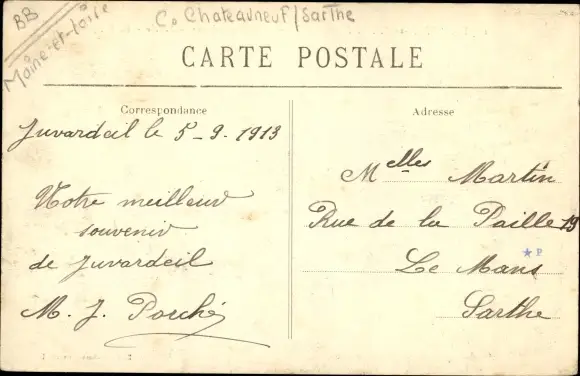 BB
Maine-et-Loire
C. Chateauneuf/Sarthe
CARTE POSTALE
Correspondance
Juvardeil le 5-9-1913
Notre meilleur
souvenir
de Juvardeil
M. J. Porché
Adresse
Melles Martin
Rue de la Paille 19
★ P
Le Mans
Sarthe